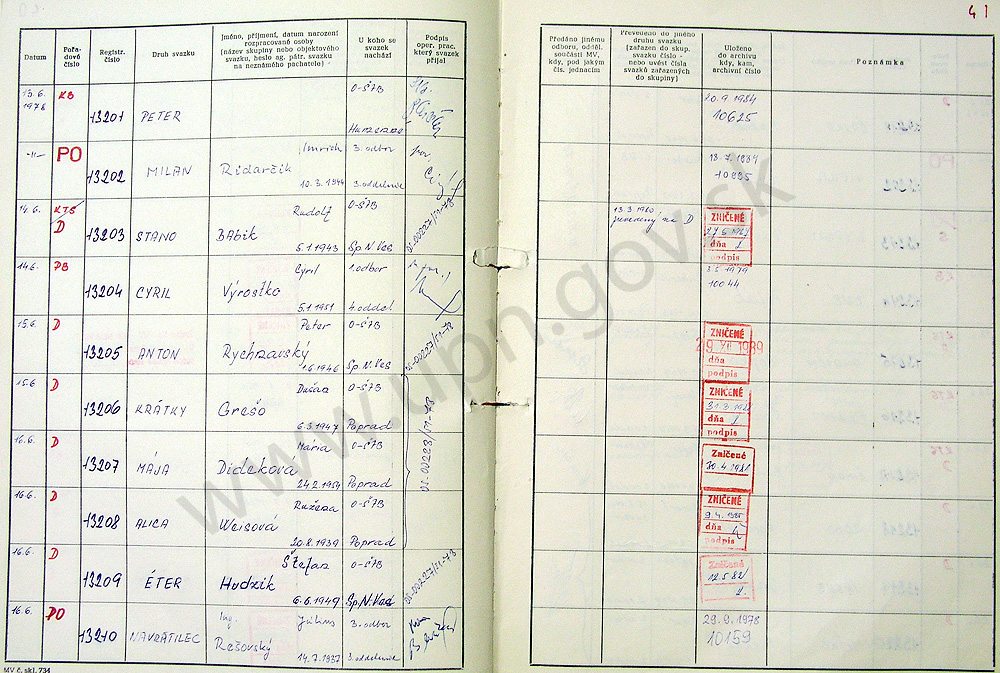 41
Datum
Pořadové číslo
Registr. číslo
Druh svazku
Jméno, příjmení, datum narození rozpracované osoby (název skupiny nebo objektového svazku, heslo ag. pátr. svazku na neznámého pachatele)
U koho se svazek nachází
Podpis oper. prac. který svazek přijal
Předáno jinému odboru, odděl. součásti MV, kdy, pod jakým čís. jednacím
Převedeno do jiného druhu svazku (zařazen do skup. svazku číslo - nebo uvést čísla svazků zařazených do skupiny)
Uloženo do archivu kdy, kam, archivní číslo
Poznámka
13.6. 1978 KB 13201 PETER O-ŠTB
20.9.1984
10625
-"- PO 13202 MILAN Imrich Ridarčik 10.3.1944 3.odbor 3.oddelenie
10895
14.6. KTS D 13203 STANO Rudolf Babik 5.1.1943 O-ŠTB Sp.N.Ves
13.3.1980 na D
ZNIČENÉ
dňa
podpis
14.6. PB 13204 CYRIL Cyril Výrostko 5.1.1951 1.odbor 4.oddel
1979
10044
15.6. D 13205 ANTON Peter Rychnavský 1.6.1946 O-ŠTB Sp.N.Ves
ZNIČENÉ
29. XII. 1989
dňa
podpis
15.6. D 13206 KRÁTKY Dušan Grešo 6.3.1947 O-ŠTB Poprad
ZNIČENÉ
dňa
podpis
16.6. D 13207 MÁJA Mária Dideková 24.2.1959 O-ŠTB Poprad
Zničené
16.6. D 13208 ALICA Ružena Weisová 20.8.1939 O-ŠTB Poprad
ZNIČENÉ
dňa
podpis
16.6. D 13209 ÉTER Štefan Hudzik 6.6.1949 O-ŠTB Sp.N.Ves
Zničené
12.5.82
16.6. PO 13210 NAVRÁTILEC Ing. Július Rešovský 14.7.1937 3.odbor 3.oddelenie
29.9.1978
10159
MV č. skl. 734
www.upn.gov.sk